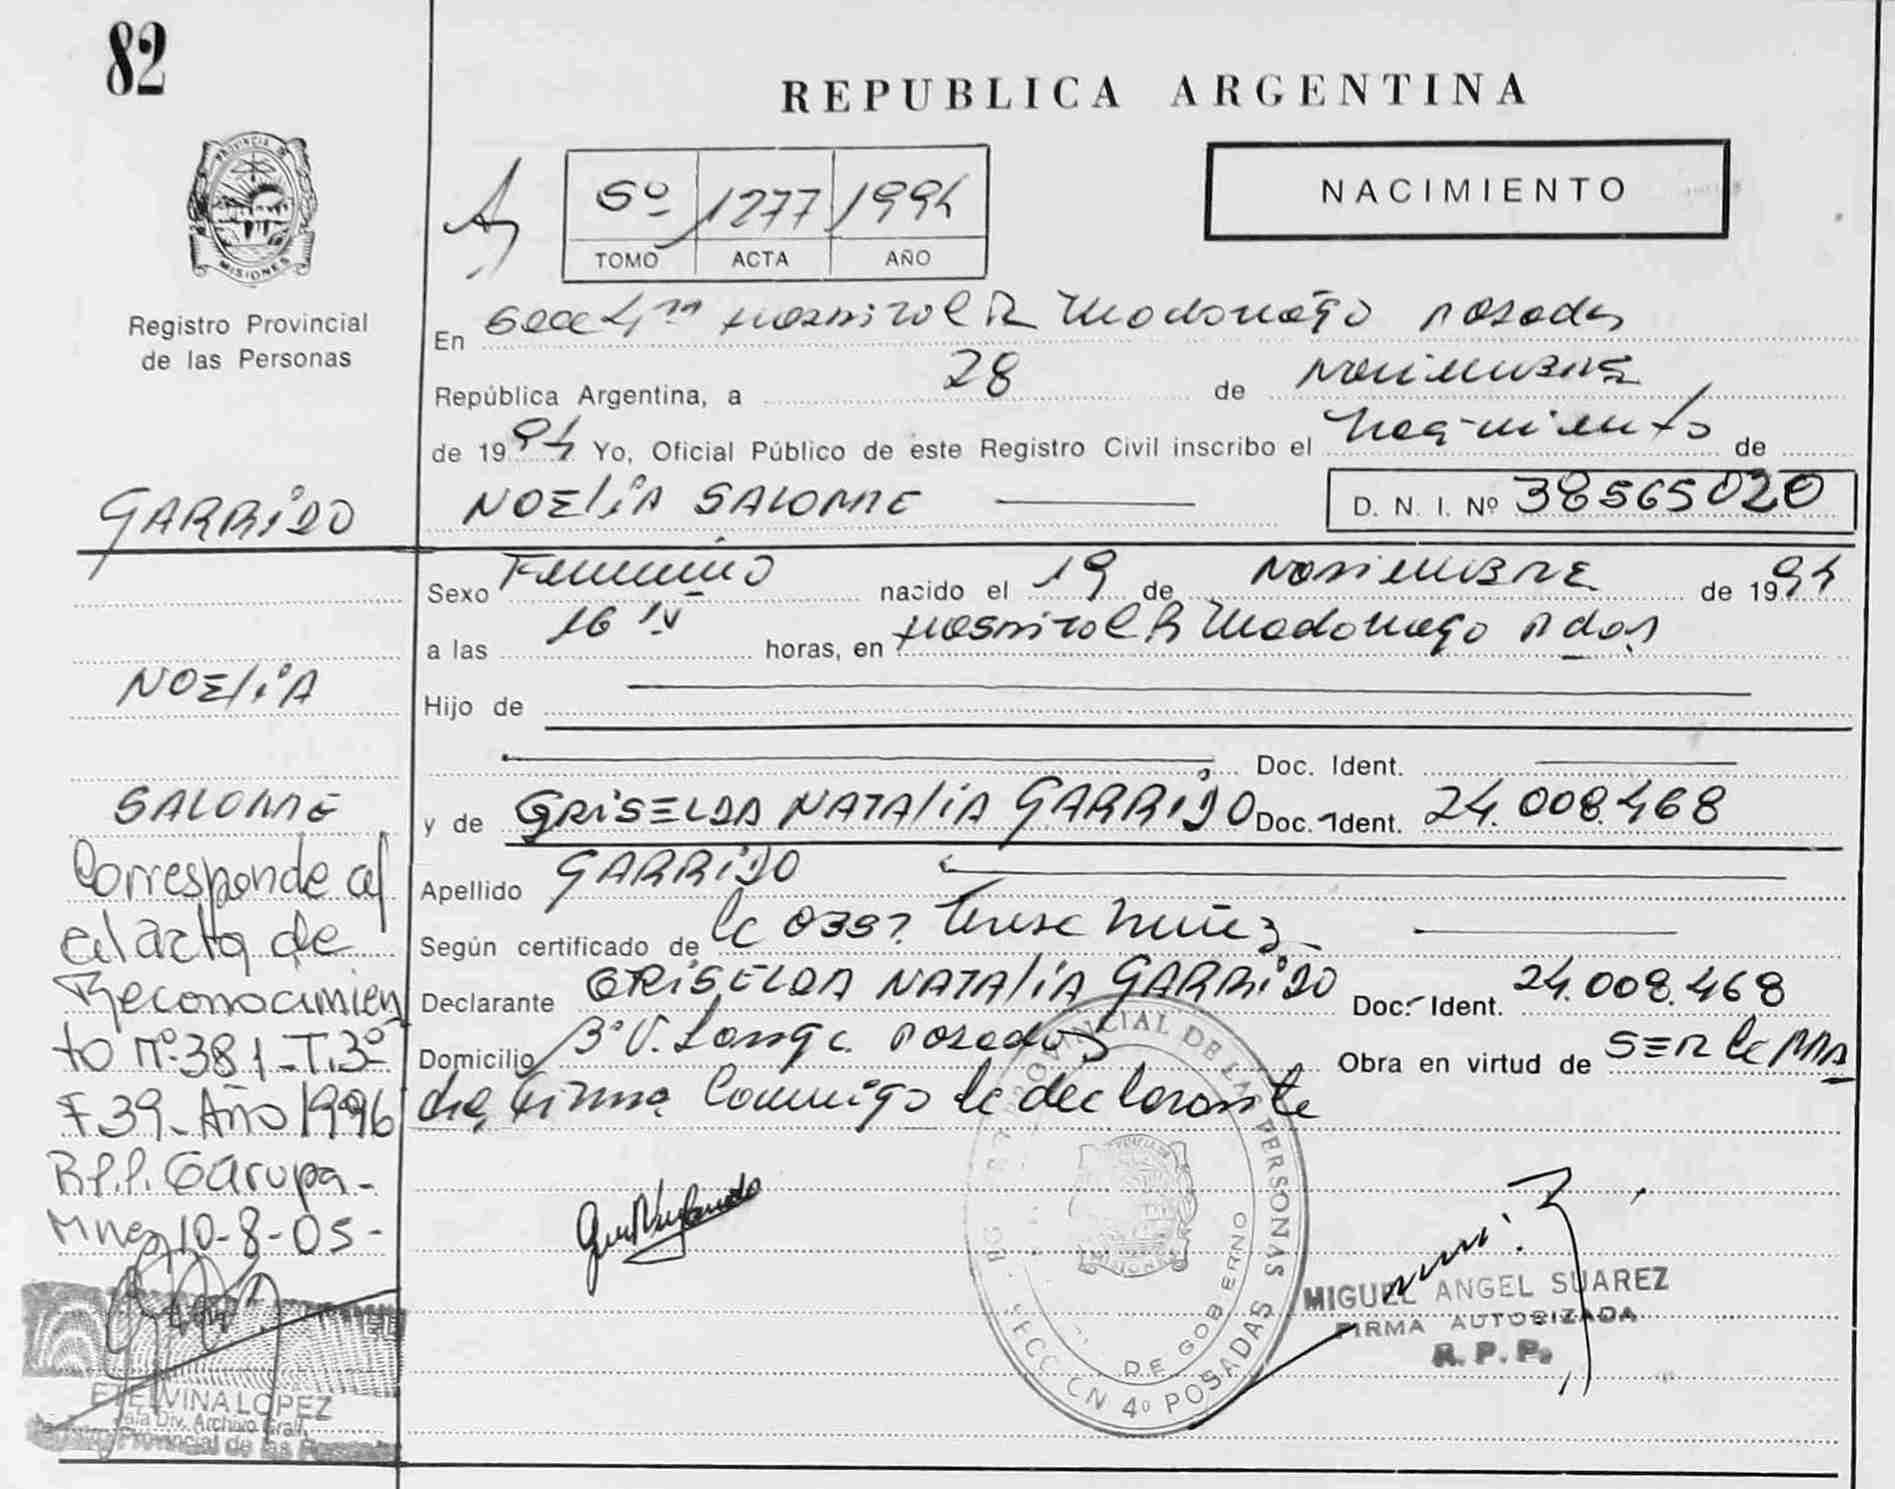 82
REPUBLICA ARGENTINA
PROVINCIA DE
MISIONES
Registro Provincial
de las Personas
5º 1277 1994
TOMO ACTA AÑO
NACIMIENTO
En Secc 4ta Hospital R Madariaga Posadas
República Argentina, a 28 de Noviembre
de 1994 Yo, Oficial Público de este Registro Civil inscribo el Nacimiento de
NOELIA SALOME D. N. I. Nº 38565020
Sexo Femenino nacido el 19 de Noviembre de 1994
a las 16 horas, en Hospital R Madariaga Pdas
Hijo de
Doc. Ident.
y de GRISELDA NATALIA GARRIDO Doc. Ident. 24.008.468
Apellido GARRIDO
Según certificado de la Obst. Teresa Nuñez
Declarante GRISELDA NATALIA GARRIDO Doc. Ident. 24.008.468
Domicilio Bº V. Larga Posadas Obra en virtud de SER la MA
dre, firma Conmigo la declarante
GARRIDO
NOELIA
SALOME
Corresponde al
el acta de
Reconocimien
to nº 381-T.3º
F 39-Año 1996
R.P.P. Garupa-
Mnes 10-8-05-
ETELVINA LOPEZ
Jefa Div. Archivo Gral.
Registro Provincial de las Personas
PROVINCIAL DE LAS PERSONAS
DE GOBIERNO
SECCION 4º POSADAS
MISIONES
MIGUEL ANGEL SUAREZ
FIRMA AUTORIZADA
R. P. P.